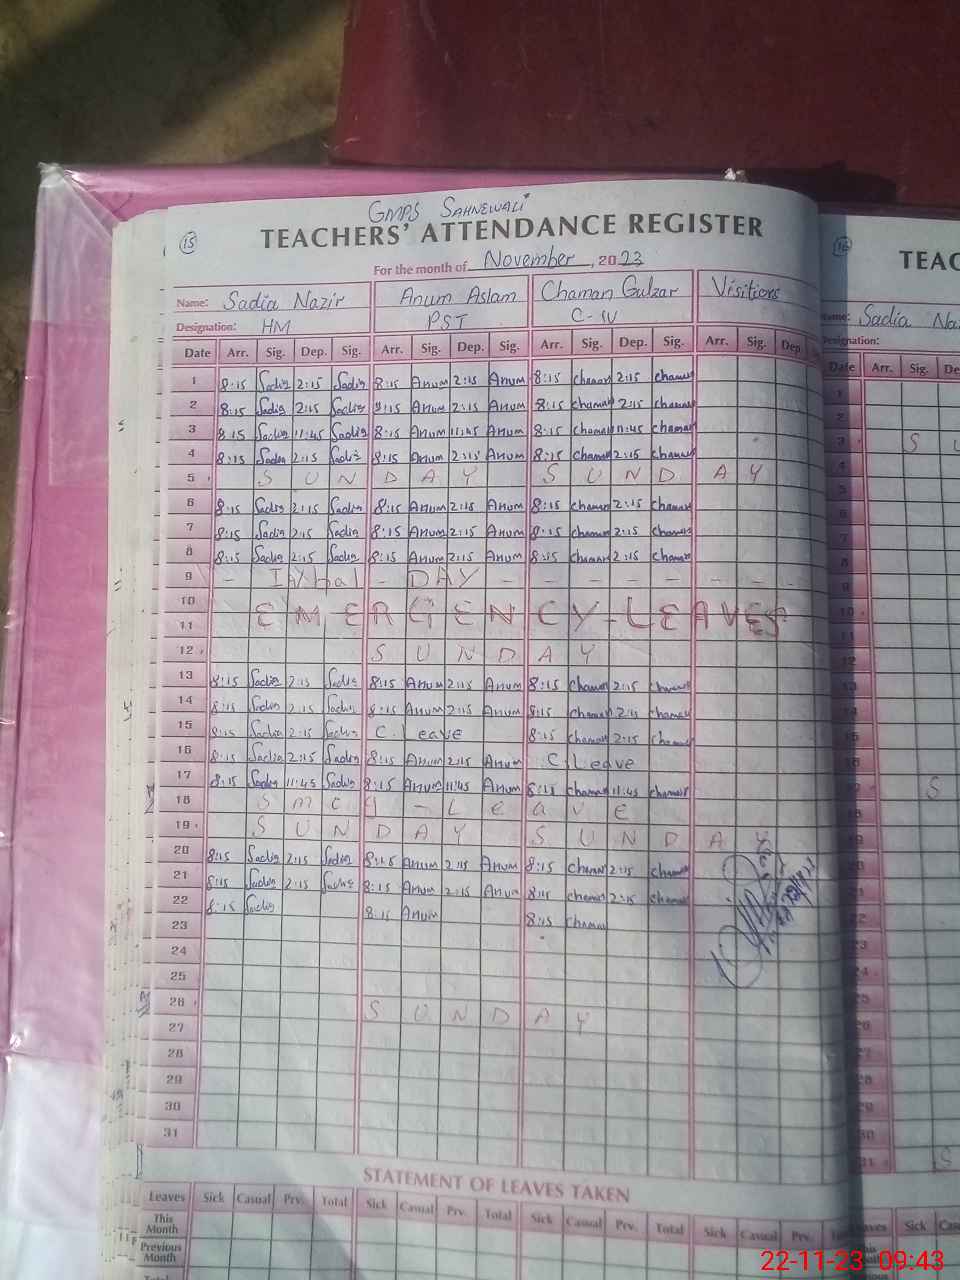 GMPS SAHNEWALI
15 TEACHERS' ATTENDANCE REGISTER
For the month of November, 2023
Name: Sadia Nazir Anum Aslam Chaman Gulzar Visitiors
Designation: HM PST C-IV
Date Arr. Sig. Dep. Sig. Arr. Sig. Dep. Sig. Arr. Sig. Dep. Sig. Arr. Sig. Dep.
1 8:15 Sadia 2:15 Sadia 8:15 Anum 2:15 Anum 8:15 Chaman 2:15 Chaman
2 8:15 Sadia 2:15 Sadia 8:15 Anum 2:15 Anum 8:15 Chaman 2:15 Chaman
3 8:15 Sadia 11:45 Sadia 8:15 Anum 11:45 Anum 8:15 Chaman 11:45 Chaman
4 8:15 Sadia 2:15 Sadia 8:15 Anum 2:15 Anum 8:15 Chaman 2:15 Chaman
5 S U N D A Y S U N D A Y
6 8:15 Sadia 2:15 Sadia 8:15 Anum 2:15 Anum 8:15 Chaman 2:15 Chaman
7 8:15 Sadia 2:15 Sadia 8:15 Anum 2:15 Anum 8:15 Chaman 2:15 Chaman
8 8:15 Sadia 2:15 Sadia 8:15 Anum 2:15 Anum 8:15 Chaman 2:15 Chaman
9 - Iqbal - DAY - - - - - - - -
10
11 EMERGENCY-LEAVES
12 S U N D A Y
13 8:15 Sadia 2:15 Sadia 8:15 Anum 2:15 Anum 8:15 Chaman 2:15 Chaman
14 8:15 Sadia 2:15 Sadia 8:15 Anum 2:15 Anum 8:15 Chaman 2:15 Chaman
15 8:15 Sadia 2:15 Sadia C. Leave 8:15 Chaman 2:15 Chaman
16 8:15 Sadia 2:15 Sadia 8:15 Anum 2:15 Anum C. Leave
17 8:15 Sadia 11:45 Sadia 8:15 Anum 11:45 Anum 8:15 Chaman 11:45 Chaman
18 S m o g - L e a v e
19 S U N D A Y S U N D A Y
20 8:15 Sadia 2:15 Sadia 8:15 Anum 2:15 Anum 8:15 Chaman 2:15 Chaman
21 8:15 Sadia 2:15 Sadia 8:15 Anum 2:15 Anum 8:15 Chaman 2:15 Chaman
22 8:15 Sadia 8:15 Anum 8:15 Chaman
23
24
25
26 S U N D A Y
27
28
29
30
31
STATEMENT OF LEAVES TAKEN
Leaves Sick Casual Prv. Total Sick Casual Prv. Total Sick Casual Prv. Total Sick Casual Prv.
This Month
Previous Month
Total
16 TEAC
Name: Sadia Na
Designation:
Date Arr. Sig. De
22-11-23 09:43